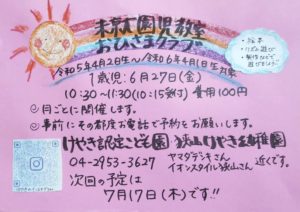 未就園児教室
おひさまクラブ
・絵本
・リズム遊び
・製作などで
遊びましょう!
令和5年4月2日生~令和6年4月1日生対象
1歳児:6月27日(金)
10:30~11:30(10:15受付) 費用100円
月ごとに開催します。
事前にその都度お電話で予約をお願いします。
けやき認定こども園 狭山けやき幼稚園
04-2953-3627
ヤマダデンキさん
イオンスタイル狭山さん 近くです。
次回の予定は
7月17日(木)です!!